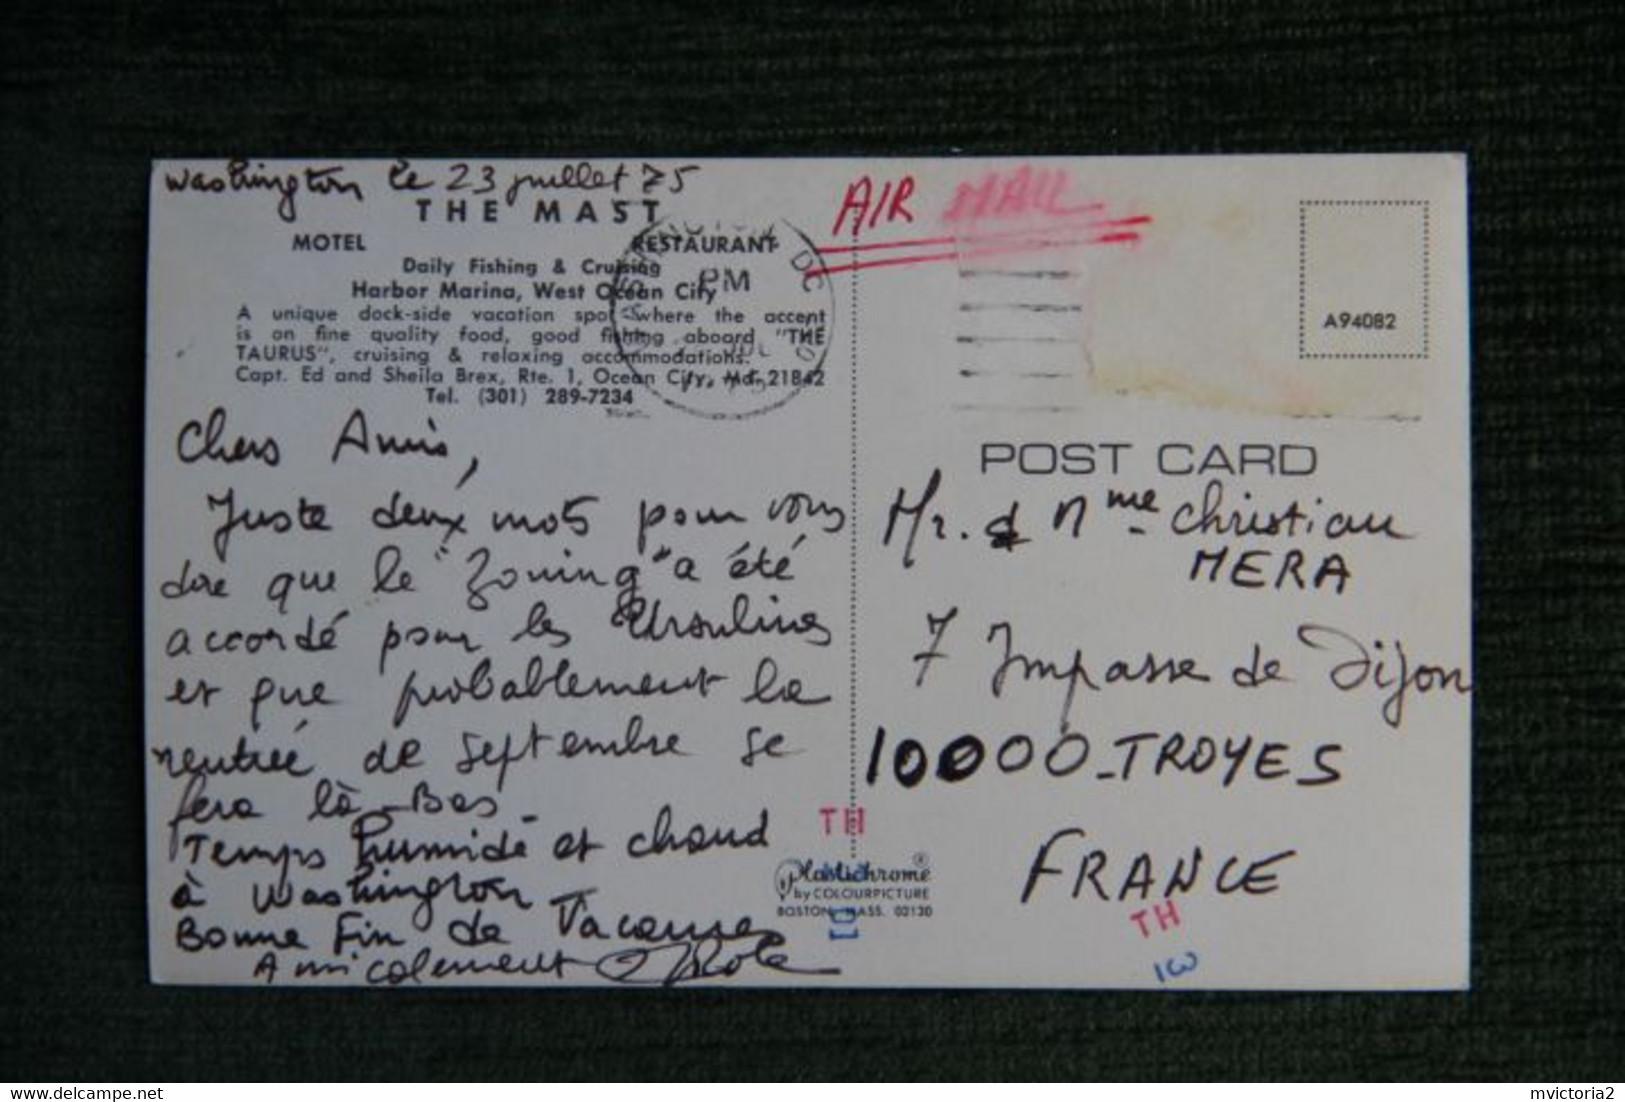 Washington le 23 juillet 75
THE MAST
MOTEL RESTAURANT
Daily Fishing & Cruising
Harbor Marina, West Ocean City
A unique dock-side vacation spot where the accent
is on fine quality food, good fishing aboard "THE
TAURUS", cruising & relaxing accommodations.
Capt. Ed and Sheila Brex, Rte. 1, Ocean City, Md. 21842
Tel. (301) 289-7234
WASHINGTON DC
PM
JUL
Chers Amis,
Juste deux mots pour vous
dire que le "Zoning" a été
accordé pour les Ursulines
et que probablement la
rentrée de septembre se
fera là-Bas.
Temps humide et chaud
à Washington
Bonne Fin de Vacances
Amicalement
AIR MAIL
A94082
POST CARD
Mr. & Mme Christian
MERA
7 Impasse de Dijon
10000-TROYES
FRANCE
TH
Plastichrome®
by COLOURPICTURE
BOSTON, MASS. 02130
TH
delcampe.net
mvictoria2